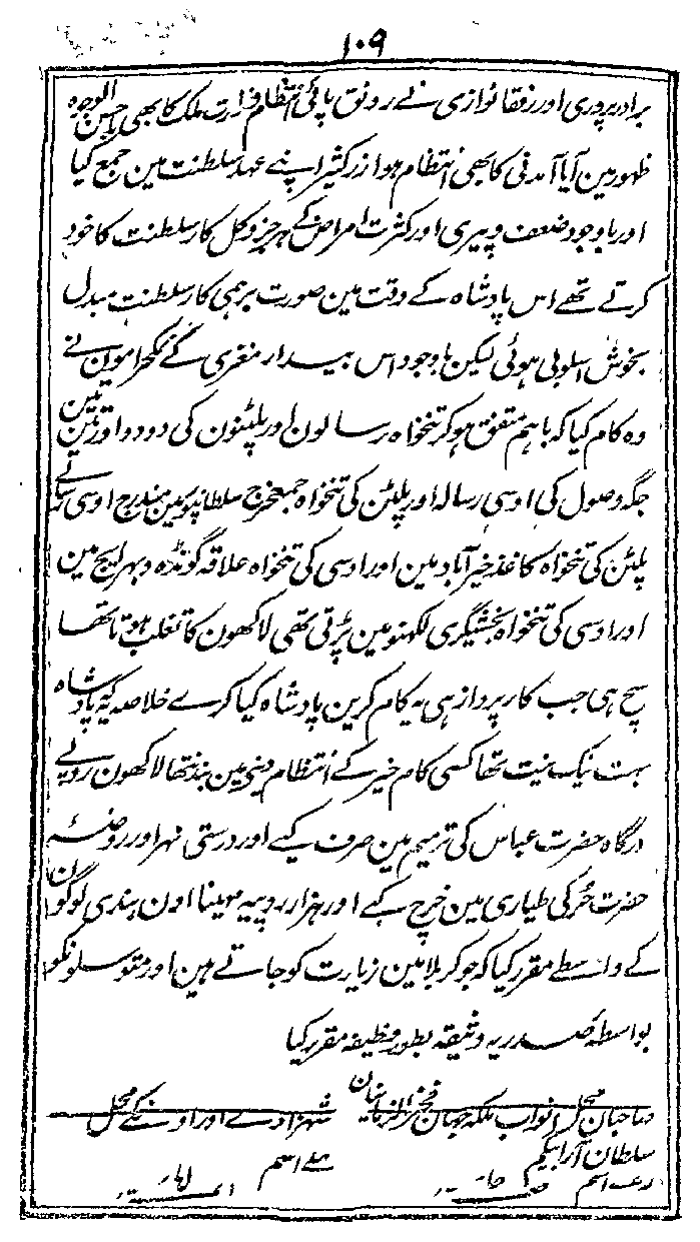 ۱۰۹
برادر پروری اور رفقا نوازی نے رونق پائی انتظام وزارت ملک کا بھی باحسن الوجوہ
ظہور مین آیا آمدنی کا بھی انتظام ہوا زر کثیر اپنے عہد سلطنت مین جمع کیا
اور باوجود ضعف و پیری اور کثرت امراض کے ہر جز و کل کار سلطنت کا خود
کرتے تھے اس پادشاہ کے وقت مین صورت برہمی کار سلطنت مبدل
بخوش اسلوبی ہوئی لیکن باوجود اس بیدار مغزی کے نمکحرامون نے
وہ کام کیا کہ باہم متفق ہوکر تنخواہ رسالون اور پلٹنون کی دو دو اور تین تین
جگہ وصول کی اوسی رسالہ اور پلٹن کی تنخواہ جمعخرچ سلطانپور مین مندرج اوسی
پلٹن کی تنخواہ کاغذ خیرآباد مین اور اوسی کی تنخواہ علاقہ گونڈہ و بہرایچ مین
اور اوسی کی تنخواہ بخشیگری لکہنو مین پڑتی تھی لاکھون کا تغلب ہوتا تھا
سچ ہی جب کار پرداز ہی یہ کام کرین پادشاہ کیا کرے خلاصہ کہ یہ پادشاہ
بہت نیک نیت تھا کسی کام خیر کے انتظام مین بند نتھا لاکھون روپے
درگاہ حضرت عباس کی ترمیم مین صرف کیے اور درستی نہر اور روضۂ
حضرت حُر کی طیاری مین خرچ کیے اور ہزار روپیہ مہینا اون ہندی لوگون
کے واسطے مقرر کیا کہ جو کربلا مین زیارت کو جاتے ہین اور متوسلونکو
بواسطہ صدر یہ وثیقہ بطور وظیفہ مقرر کیا
صاحبان محل نواب ملکہ جہان فخر الزمانیان شہزادے اور اونکے محل
سلطان آرا بیگم
اسم